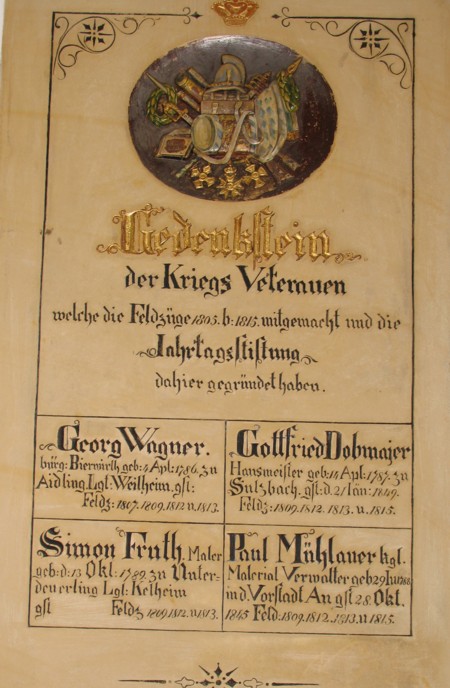 Gedenkstein
der Kriegs Veteranen
welche die Feldzüge 1805. b: 1815. mitgemacht und die
Jahrtagsstiftung
dahier gegründet haben.
Georg Wagner.
bürg: Bierwirth geb: 4 Apl: 1786. zu
Aidling. Lgt: Weilheim, gst:
Feldz: 1807. 1809. 1812 u. 1813.
Gottfried Dobmajer
Hausmeister geb: 14 Apl: 1787. zu
Sulzbach. gst: d. 2 Jan: 1849.
Feldz: 1809. 1812. 1813. u. 1815.
Simon Fruth. Maler
geb: d: 13 Okt: 1789. zu Unter-
deuerling Lgt: Kelheim
gst Feldz 1809. 1812. u. 1813.
Paul Mühlauer kgl.
Material Verwalter geb 29 Jun
in d. Vorstadt Au gst 28. Okt.
1845 Feld: 1809. 1812. 1813. u. 1815.